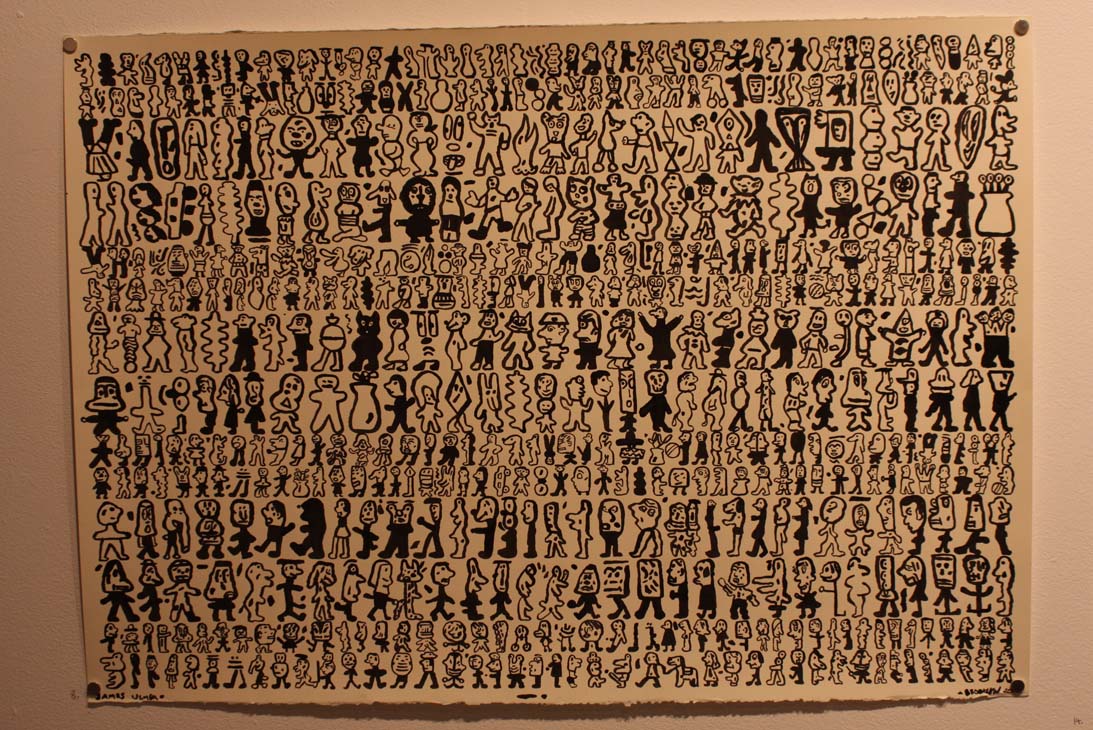 JAMES ULMER
BROOKLYN
8.
14.